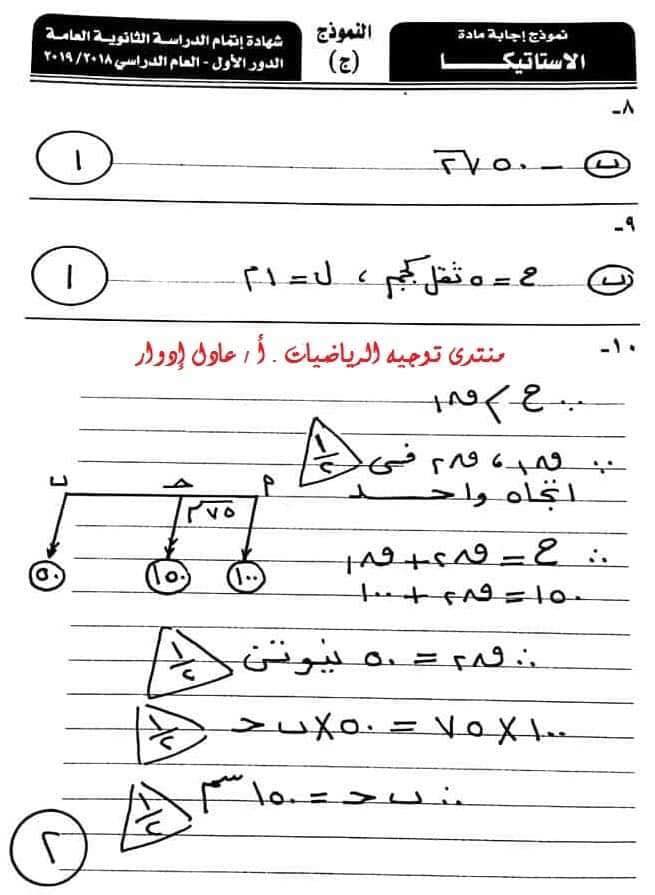 نموذج إجابة مادة
الاستاتيكا
النموذج
(ج)
شهادة إتمام الدراسة الثانوية العامة
الدور الأول - العام الدراسي ٢٠١٨/ ٢٠١٩
٨-
ب - ٥٠ ٧٢
١
٩-
ب ح = ٥ ثقل كجم ، ل = ١ م
١
١٠-
منتدى توجيه الرياضيات . أ / عادل إدوار
∵ ح > ق١
∴ ق١ ، ق٢ فى
اتجاه واحد
١/٢
ب ح م
٧٥ سم
٥٠ ١٥٠ ١٠٠
∴ ح = ق٢ + ق١
١٥٠ = ق٢ + ١٠٠
∴ ق٢ = ٥٠ نيوتن
١/٢
١٠٠ × ٧٥ = ٥٠ × ب ح
١/٢
∴ ب ح = ١٥٠ سم
١/٢
٢